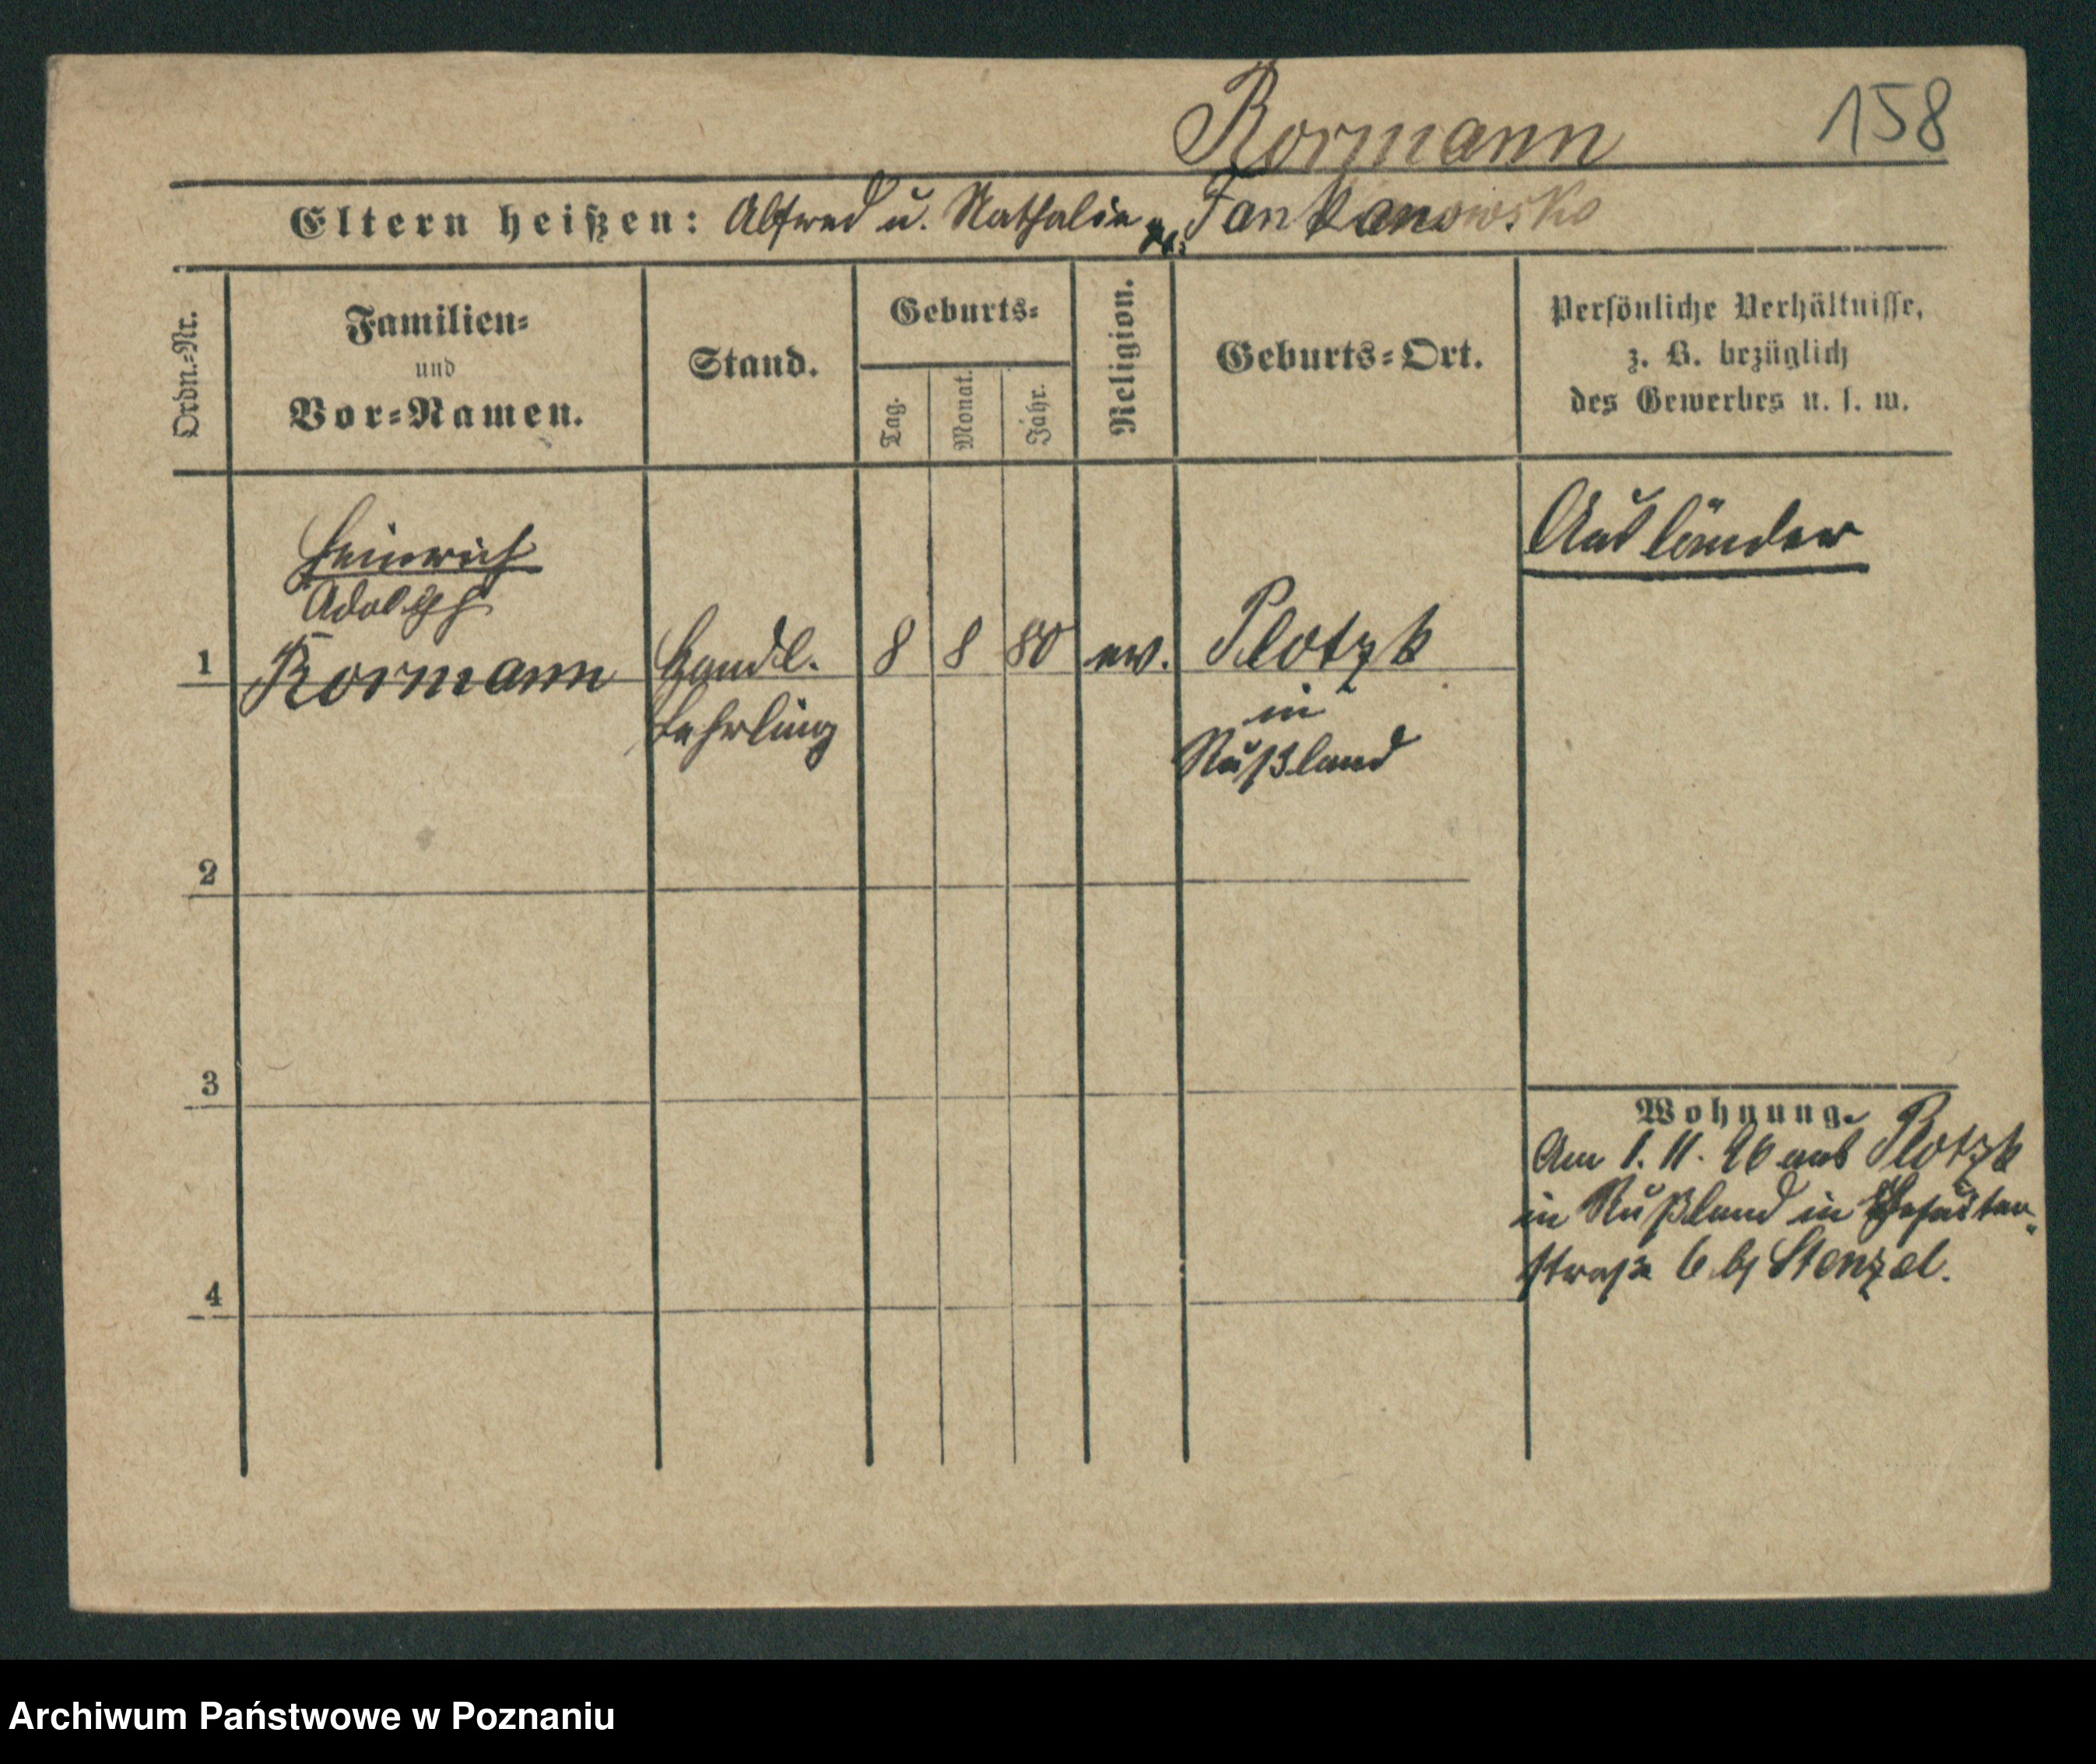 Rormann
158
Eltern heißen: Alfred u. Nathalie Jankanowsko
Ordn.=Nr.
Familien=
und
Vor=Namen.
Stand.
Geburts=
Tag.
Monat.
Jahr.
Religion.
Geburts=Ort.
Persönliche Verhältnisse,
z. B. bezüglich
des Gewerbes u. s. w.
Ausländer
Heinrich
Adolph
1 Rormann Handl. 8 8 80 ev. Plotzk
Lehrling
in
Rußland
2
3
4
Wohnung.
Am 1. 11. 96 aus Plotzk
in Rußland in
straße 6 bj Stenzel.
Archiwum Państwowe w Poznaniu